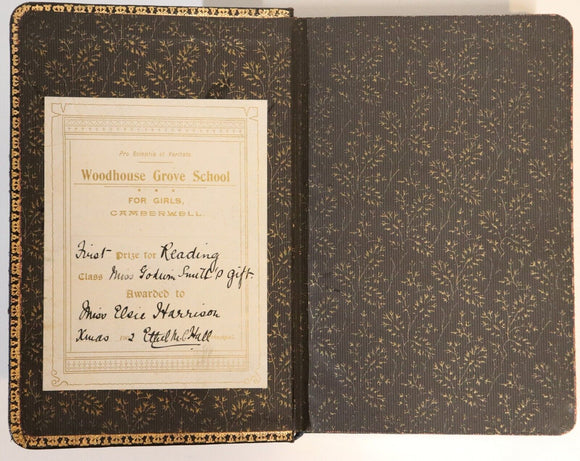 Pro Scientia et Veritate
Woodhouse Grove School
FOR GIRLS,
CAMBERWELL.
First Prize for Reading
Class Miss Godwin Smith's gift
Awarded to
Miss Elsie Harrison
Xmas 1902 Ethel M. C. Hall Principal.